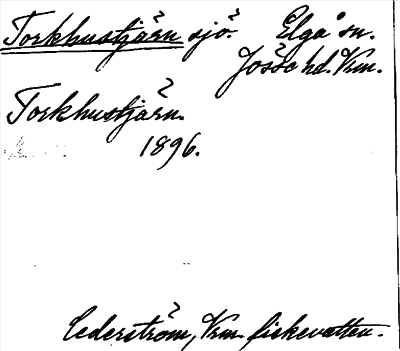 Torkhustjärn sjö. Elga sn.
Jösse hd. Vrm.
Torkhustjärn.
1896.
Cederström, Vrm. fiskevatten.